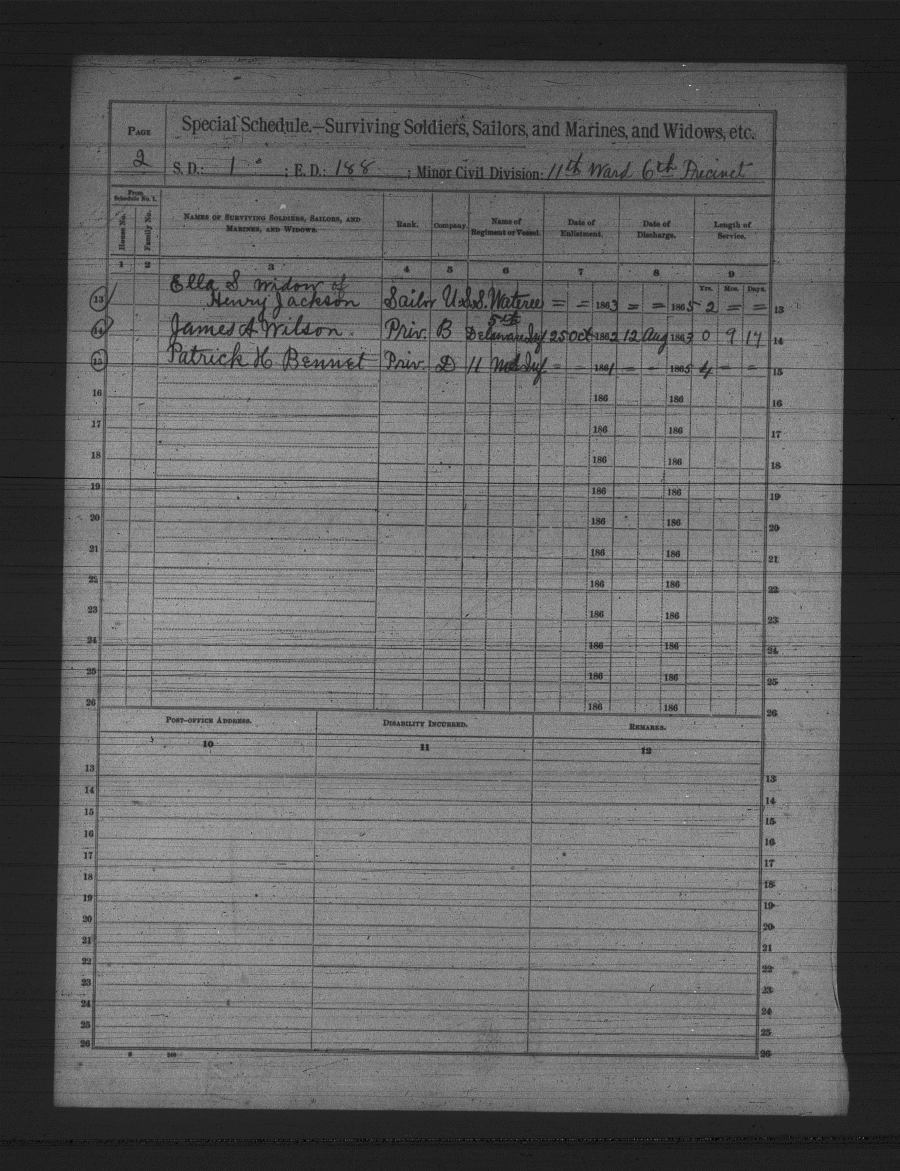 Page
2
Special Schedule.—Surviving Soldiers, Sailors, and Marines, and Widows, etc.
S. D.: 1 ; E. D.: 188 ; Minor Civil Division: 11th Ward 6th Precinct
From Schedule No. 1.
House No.
Family No.
Names of Surviving Soldiers, Sailors, and Marines, and Widows.
Rank.
Company.
Name of Regiment or Vessel.
Date of Enlistment.
Date of Discharge.
Length of Service.
1 2 3 4 5 6 7 8 9
Yrs. Mos. Days.
Ella S widow of
13 Henry Jackson Sailor U.S.S. Wateree = = 1863 = = 1865 2 = = 13
5th
14 James A Wilson. Priv. B Delaware Inf 25 Oct 1862 12 Aug 1863 0 9 17 14
15 Patrick H Bennet Priv. D 11 Md Inf - - 1861 - - 1865 4 - - 15
16 186 186 16
17 186 186 17
18 186 186 18
19 186 186 19
20 186 186 20
21 186 186 21
22 186 186 22
23 186 186 23
24 186 186 24
25 186 186 25
26 186 186 26
Post-office Address. Disability Incurred. Remarks.
10 11 12
13 13
14 14
15 15
16 16
17 17
18 18
19 19
20 20
21 21
22 22
23 23
24 24
25 25
26 26